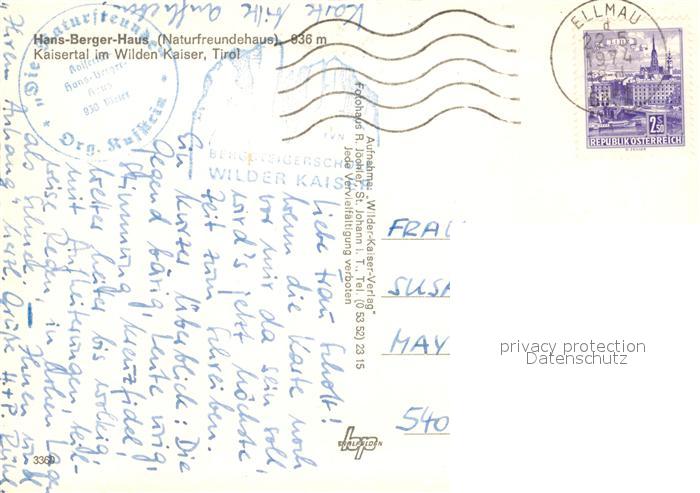 Karte bitte aufheben
Hans-Berger-Haus (Naturfreundehaus), 936 m
Kaisertal im Wilden Kaiser, Tirol
"Die Naturfreunde"
Hans-Berger-
Haus
930 Meter
Org. Kufstein
BERGSTEIGERSCHULE
WILDER KAISER
ELLMAU
22.5.
1974
2.S50
REPUBLIK ÖSTERREICH
Aufnahme: „Wilder-Kaiser-Verlag"
Fotohaus R. Jöchler, St. Johann i. T., Tel. (0 53 52) 23 15
Jede Vervielfältigung verboten
Liebe Frau Scholt!
Wenn die Karte noch
vor mir da sein soll
wird's jetzt höchste
Zeit zum Schreiben.
Ein kurzer Überblick: Die
Gegend bärig, Leute urig,
Stimmung kreuzfidel,
Wetter heiter bis wolkig,
mit Aufheiterungen teil-
weise Regen, in hohen Lagen
als Schnee. Ihnen und
Ihrem Anhang herzl. Grüße H.+P.
FRAU
SUSA
MAY
540
privacy protection
Datenschutz
3360